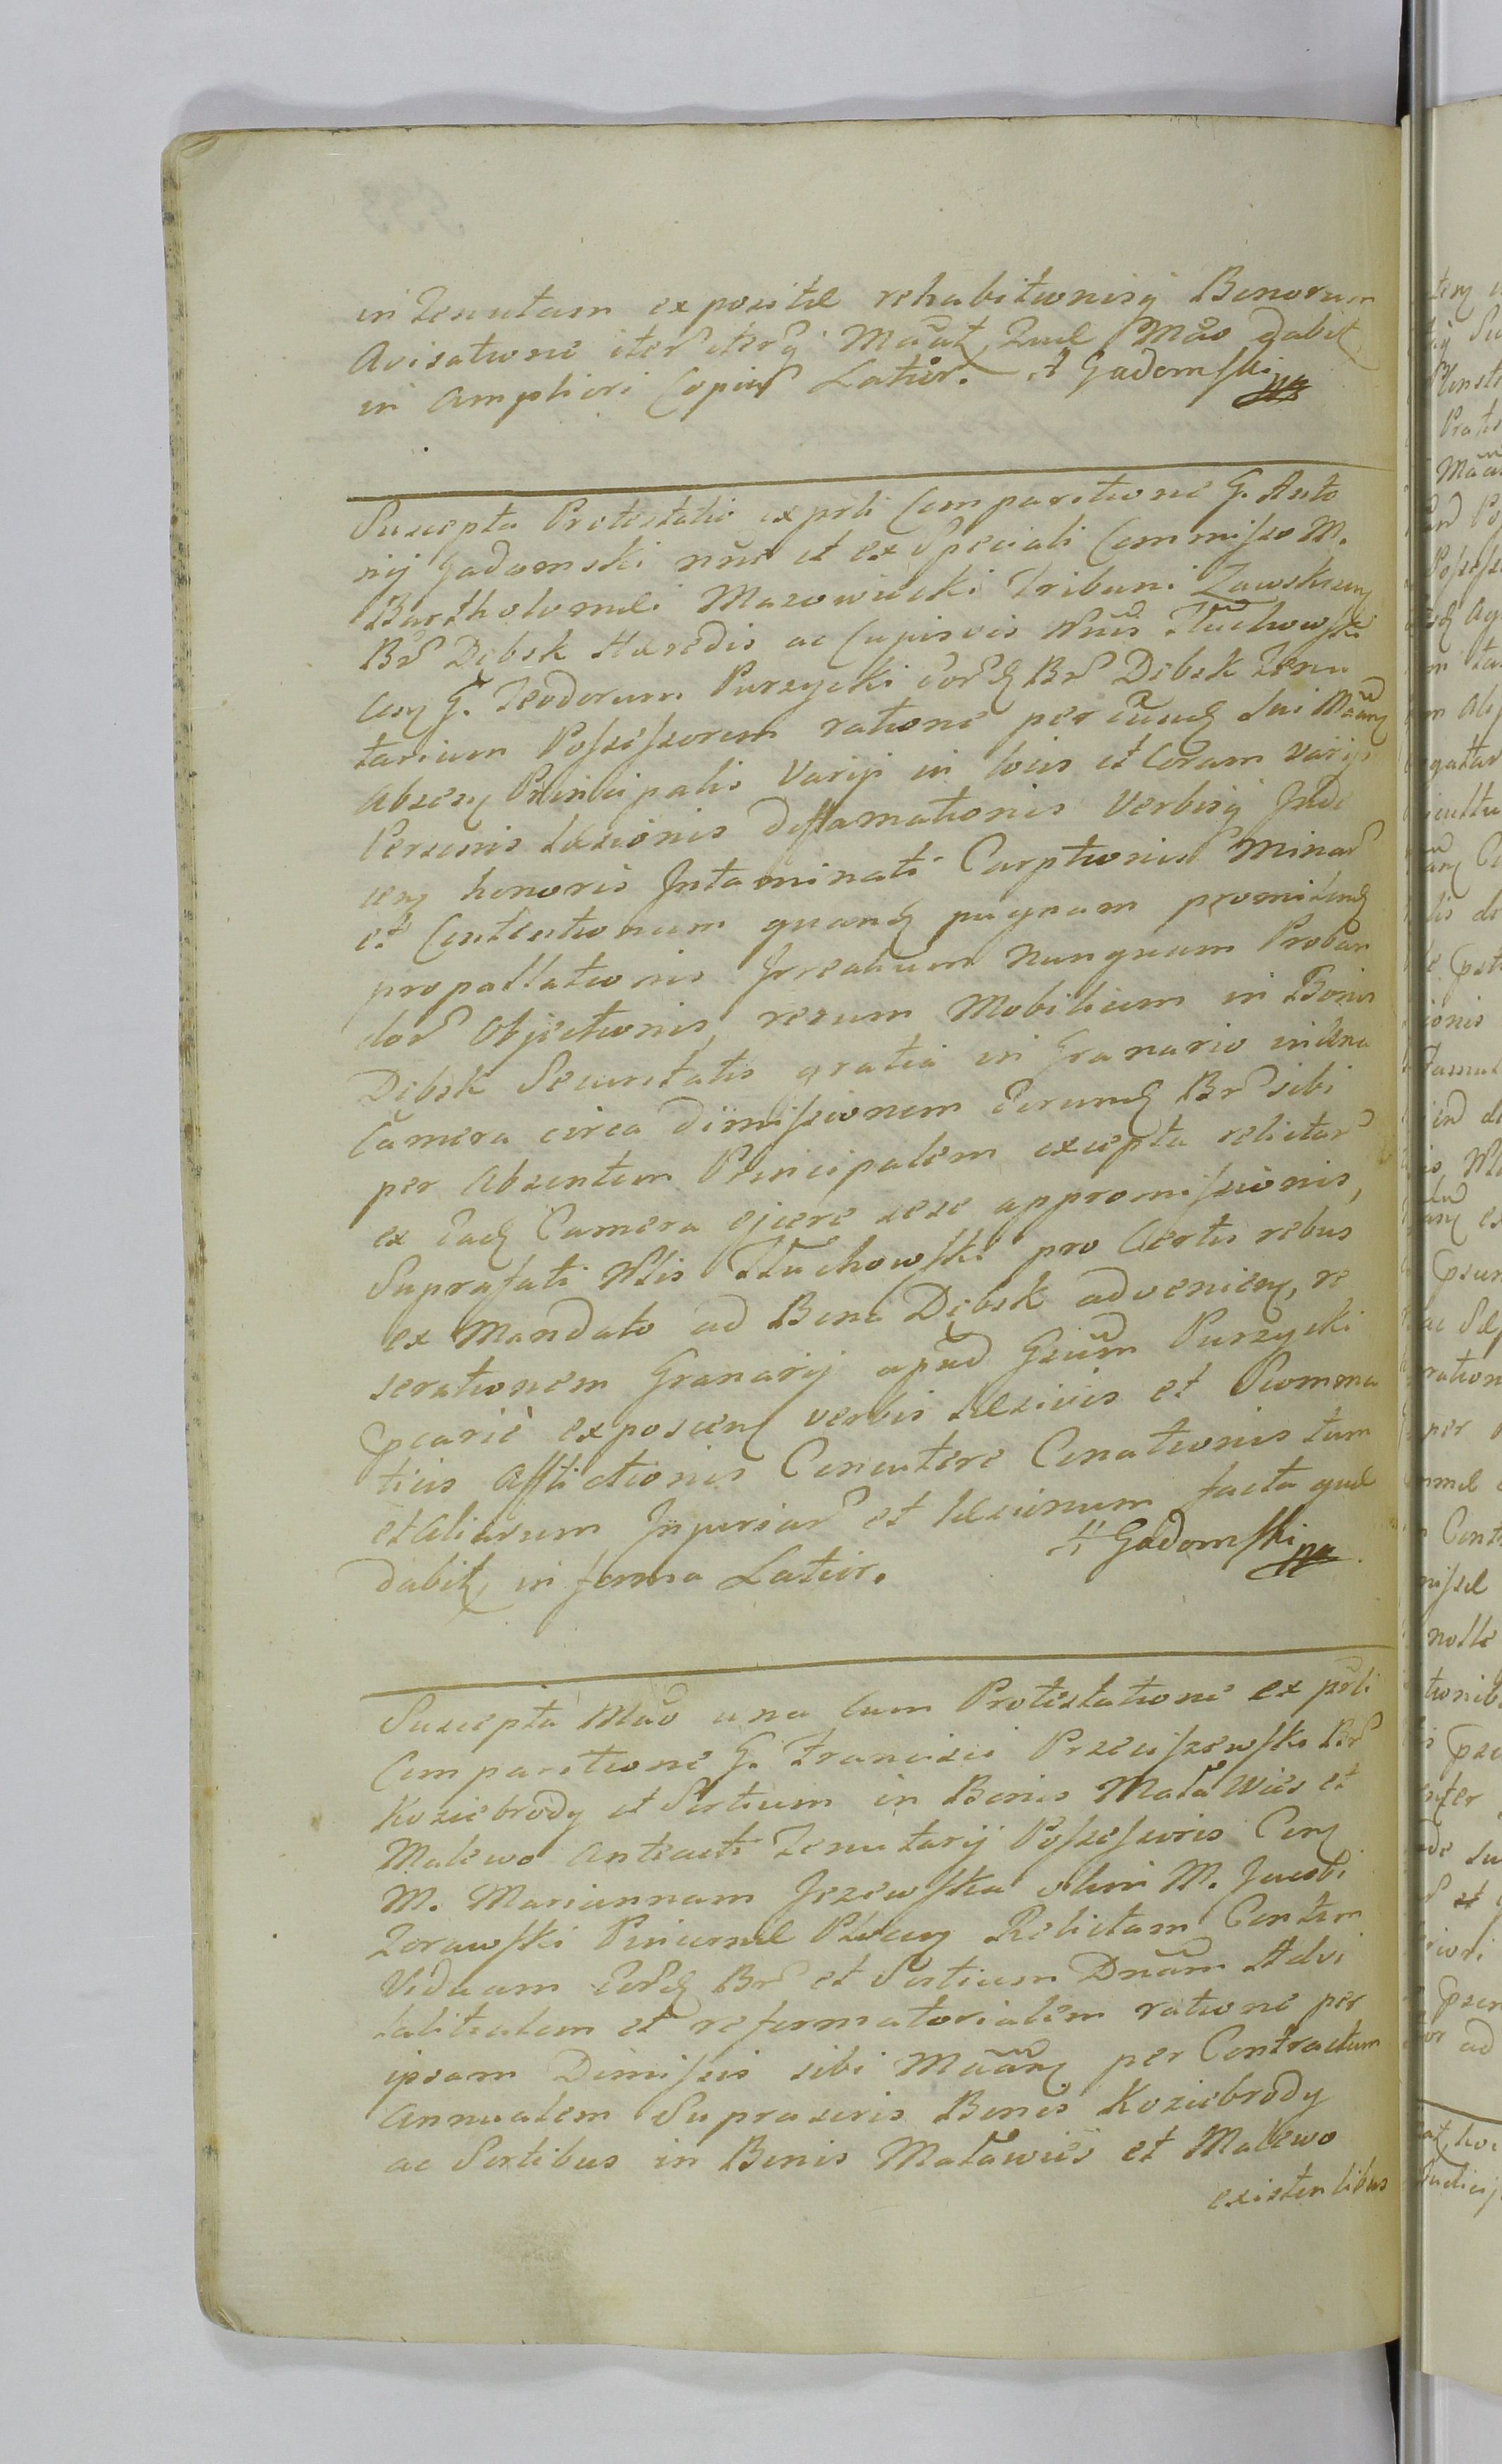 in Tenutam expositæ rehabitionisq Bonorum
Avisatione iter iterq Mãat, Quæ Mão dabit
in Ampliori Copiaʳ Latior. A Gadomski mp
Suscepta Protestatio ex prli Comparitione G. Anto
nij Gadomski nne et ex Speciali Commisso M.
Bartholomæi Mazowiecki Tribuni Zawskrzen
Br Dębsk Hæredis ac Cupisvis Nnis Tłuchowski
Con G. Teodorum Purzycki eord Br Debsk Tenu
tarium Possessorem ratione per eund sui Mãan
Absen Principalis Varijs in locis et Coram varijs
Personis læsionis deffamationis Verbisq Inde
cen honoris Intaminati Carptionis Minar
et Contentionum quand pugnam promitend
propallationis Irrealium Nunquam Proban
dor Objectionis, rerum Mobilium in Bonis
Dębsk Securitatis gratia in Granario in una
Camera circa dimissionem Eorund Br sibi
per Absentem Principalem excepta relictar
ex Ead Camera ejicere sese appromissionis,
Suprafati Nlis Tłuchowski pro Certis rebus
ex Mandato ad Bona Dębsk advenien, re
serationem Granarij apud Gsum Purzycki
pcariè exposcen verbis læsivis et Scomma
ticis Afflictionis Concutere Conationis tum
et aliarum Injuriar et læsionum facta quæ
dabit, in forma Latior. A Gadomski mp
Suscepta Mão una cum Protestatione ex prli
Comparitione G. Francisci Przeciszewski Br
Koziebrody et Sortium in Bonis Mała Wies et
Malewo Anteacti Tenutarij Possessoris Con
M. Mariannam Jezewska olim M. Jacobi
Zorawski Pincernæ Plocen Relictam Contem
Viduam eord Br et Sortium Dnam Advi
talitialem et reformatorialem ratione per
ipsam Dimissis sibi Mãan per Contractum
Annualem Suprascris Bonis Koziebrody
ac Sortibus in Bonis Maławieś et Malewo
existentibus